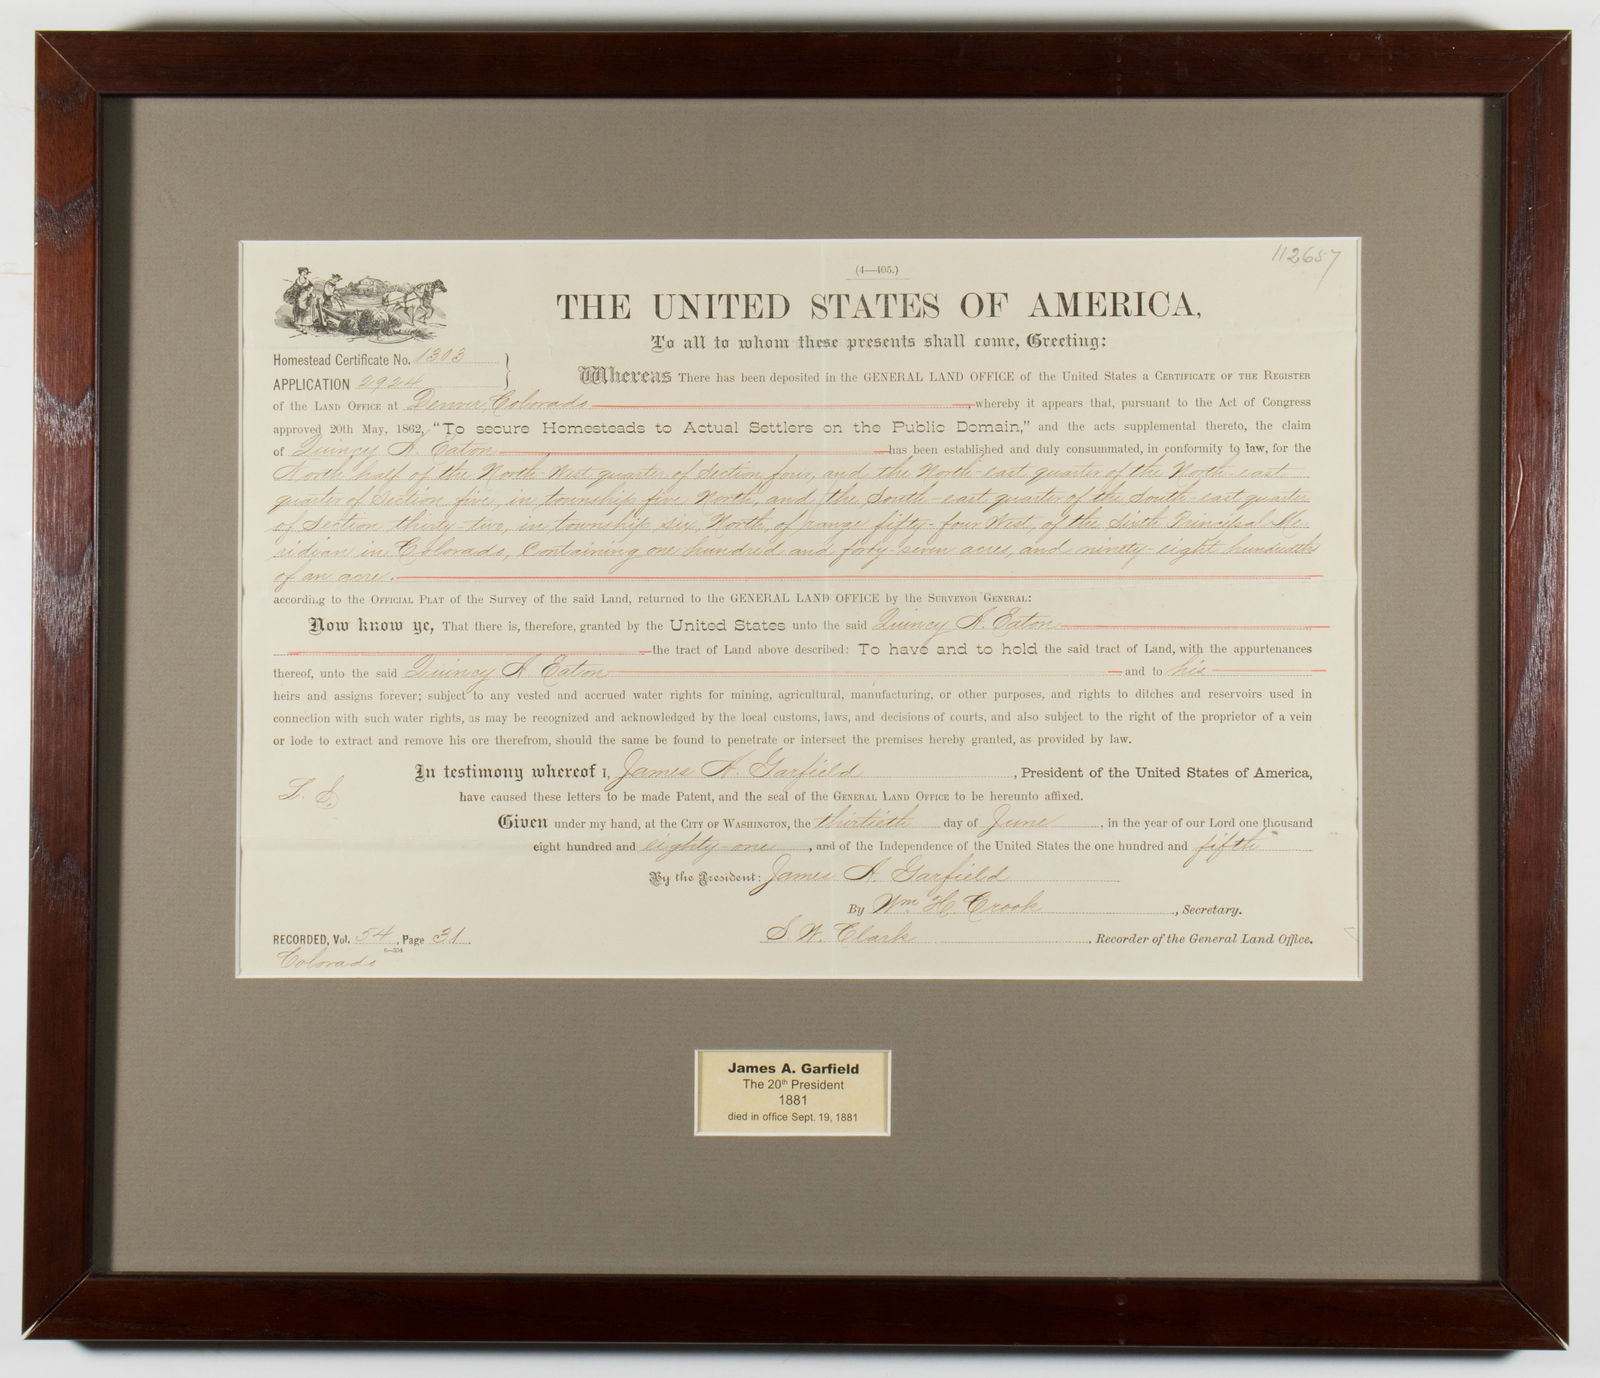 112657
(4—405.)
THE UNITED STATES OF AMERICA,
To all to whom these presents shall come, Greeting:
Homestead Certificate No. 1303
APPLICATION 2924
Whereas There has been deposited in the GENERAL LAND OFFICE of the United States a CERTIFICATE OF THE REGISTER
OF THE LAND OFFICE at Denver, Colorado, whereby it appears that, pursuant to the Act of Congress
approved 20th May, 1862, "To secure Homesteads to Actual Settlers on the Public Domain," and the acts supplemental thereto, the claim
of Quincy A. Eaton has been established and duly consummated, in conformity to law, for the
North half of the North West quarter of Section four, and the North-east quarter of the North-east
quarter of Section five, in township five, North, and the South-east quarter of the South-east quarter
of Section thirty-two, in township six, North, of range fifty-four West, of the Sixth Principal Me
ridian in Colorado, Containing one hundred and forty-seven acres, and ninety-eight hundredths
of an acre.
according to the OFFICIAL PLAT of the Survey of the said Land, returned to the GENERAL LAND OFFICE by the SURVEYOR GENERAL:
Now know ye, That there is, therefore, granted by the United States unto the said Quincy A. Eaton
the tract of Land above described: To have and to hold the said tract of Land, with the appurtenances
thereof, unto the said Quincy A Eaton and to his
heirs and assigns forever; subject to any vested and accrued water rights for mining, agricultural, manufacturing, or other purposes, and rights to ditches and reservoirs used in
connection with such water rights, as may be recognized and acknowledged by the local customs, laws, and decisions of courts, and also subject to the right of the proprietor of a vein
or lode to extract and remove his ore therefrom, should the same be found to penetrate or intersect the premises hereby granted, as provided by law.
In testimony whereof I, James A. Garfield, President of the United States of America,
L. S.
have caused these letters to be made Patent, and the seal of the GENERAL LAND OFFICE to be hereunto affixed.
Given under my hand, at the CITY OF WASHINGTON, the thirtieth day of June, in the year of our Lord one thousand
eight hundred and eighty-one, and of the Independence of the United States the one hundred and fifth
By the President: James A. Garfield
By Wm H. Crook, Secretary.
RECORDED, Vol. 54, Page 31
S. W. Clark, Recorder of the General Land Office.
Colorado
James A. Garfield
The 20th President
1881
died in office Sept. 19, 1881